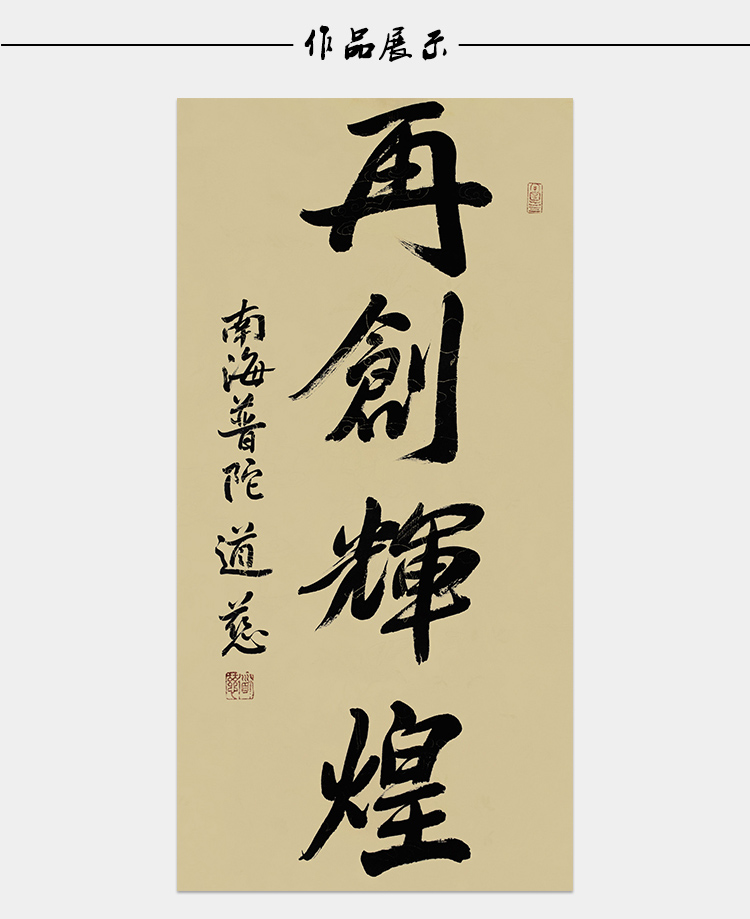 作品展示
再創輝煌
南海普陀道慈